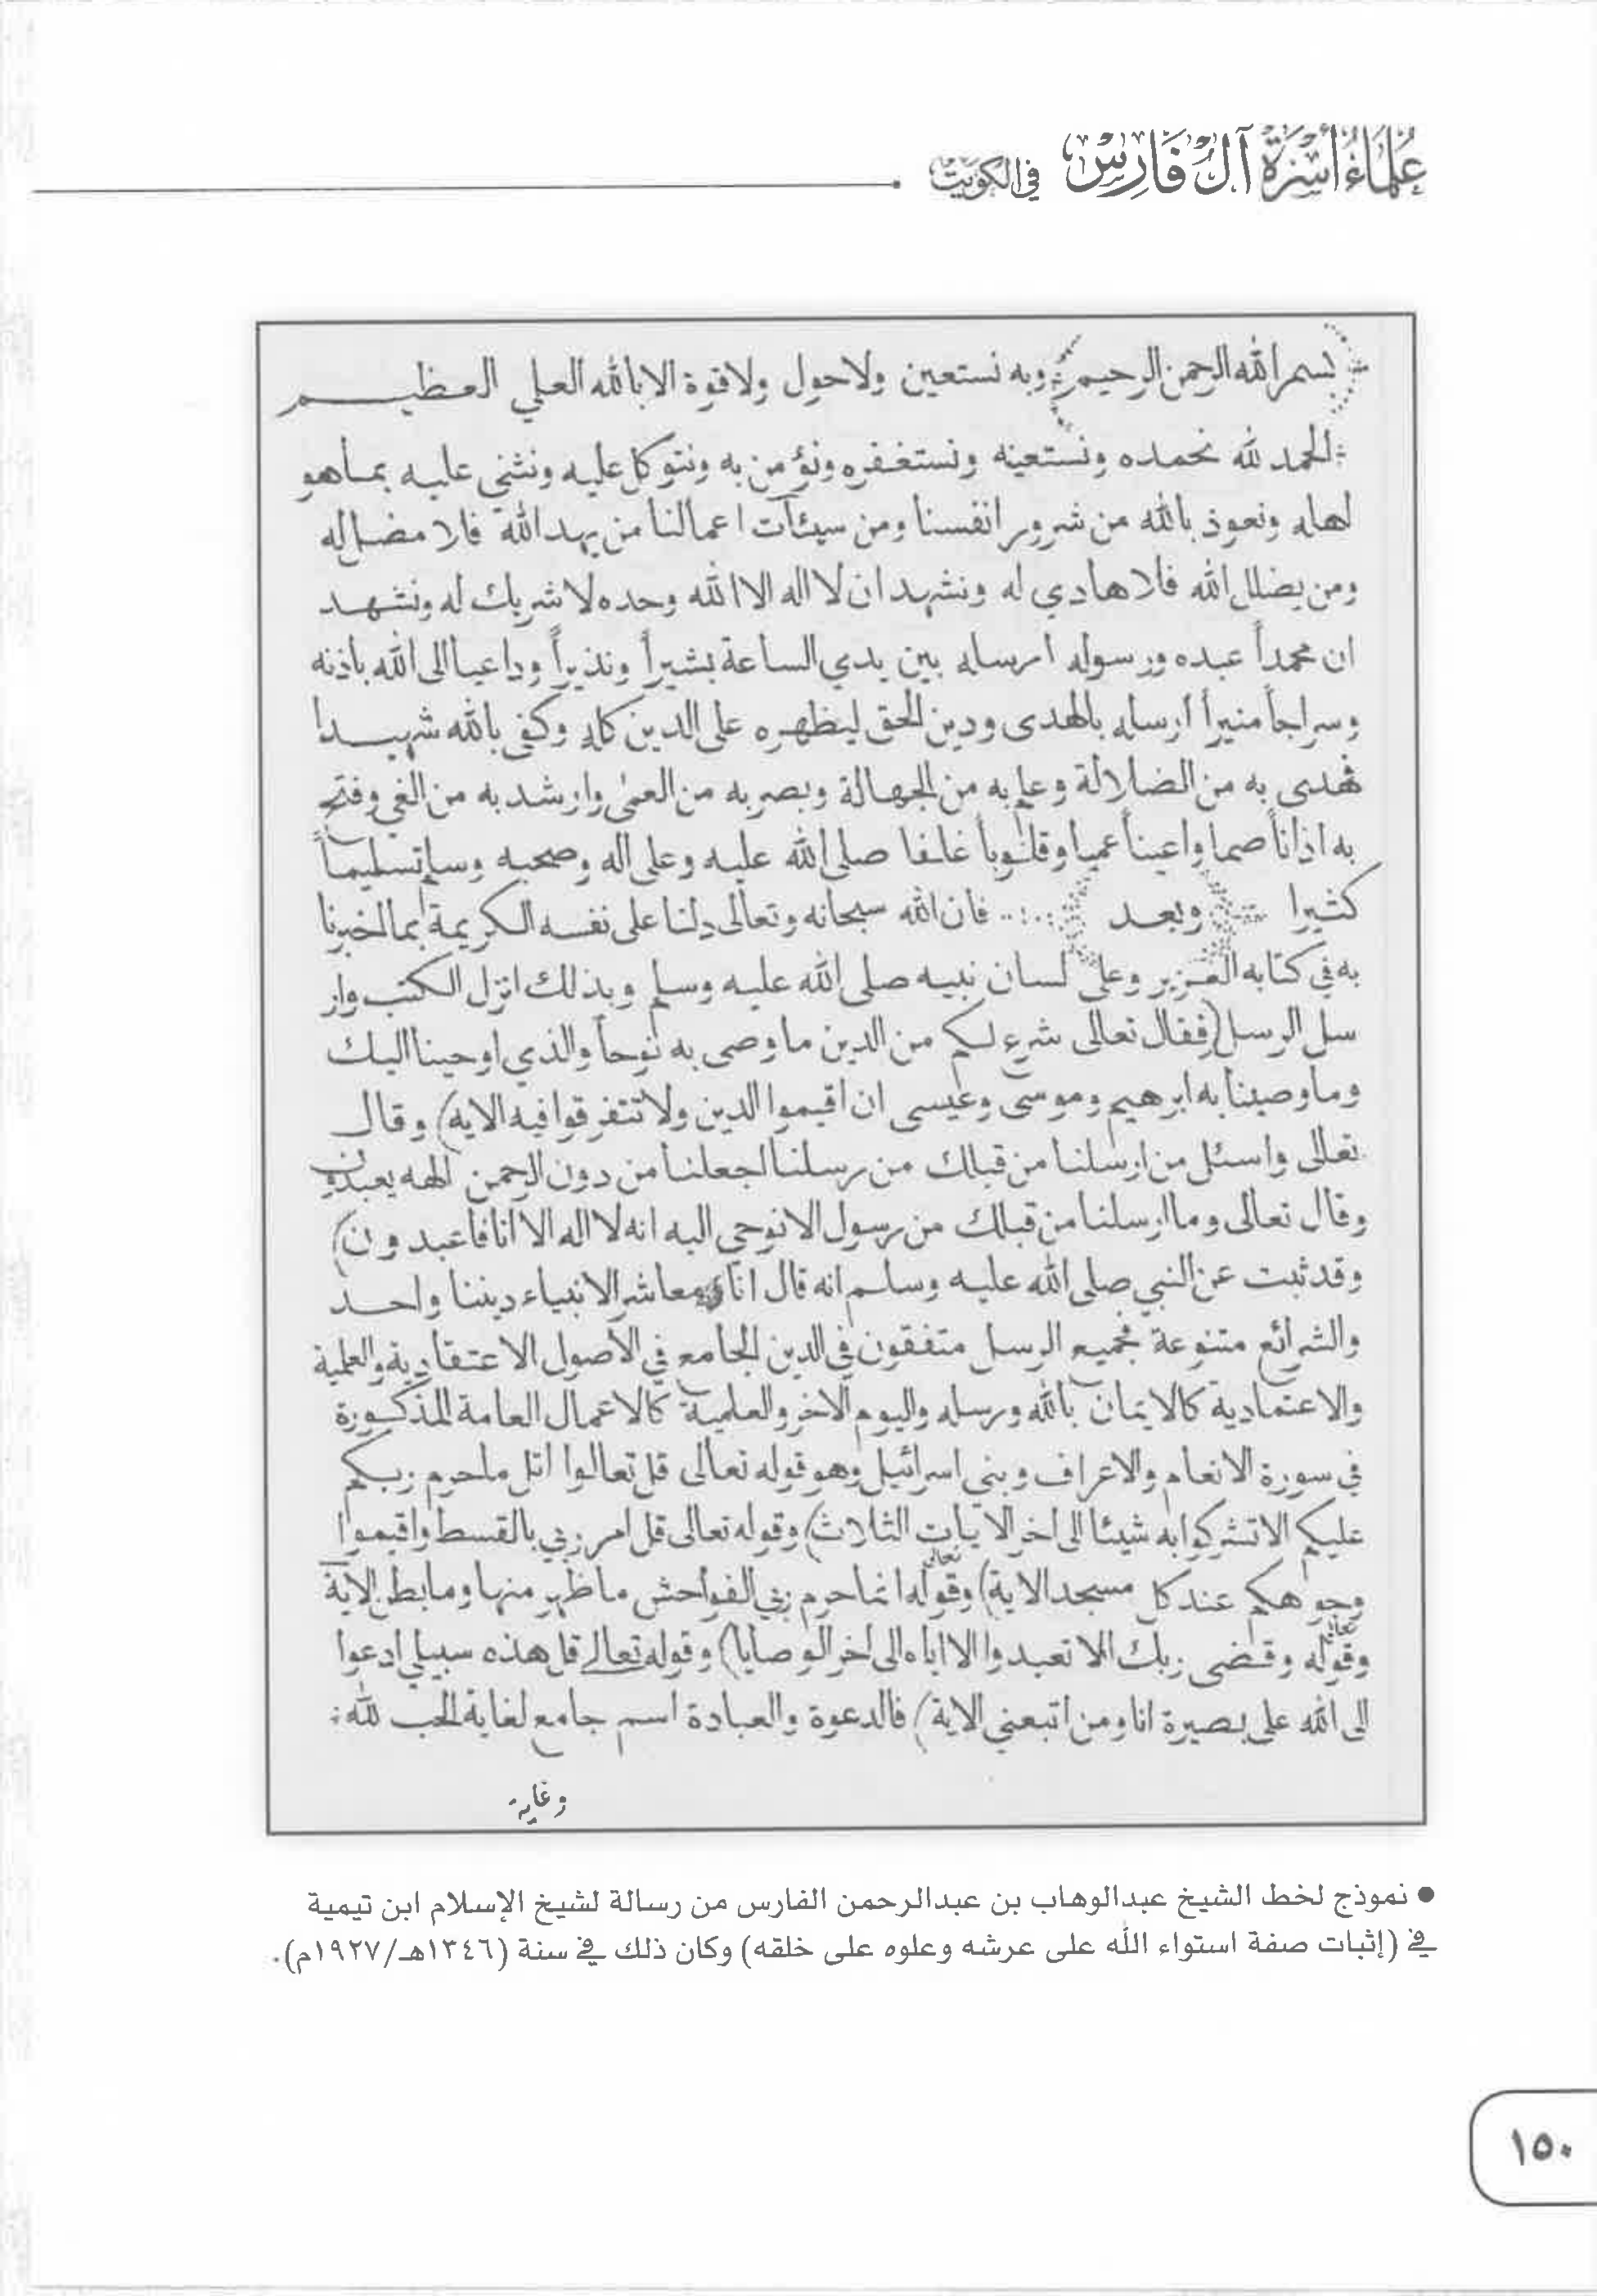 علماء أسرة آل فارس في الكويت
بسم الله الرحمن الرحيم وبه نستعين ولا حول ولا قوة الا بالله العلي العظيم
الحمد لله نحمده ونستعينه ونستغفره ونؤمن به ونتوكل عليه ونثني عليه بما هو
اهله ونعوذ بالله من شرور انفسنا ومن سيئآت اعمالنا من يهد الله فلا مضل له
ومن يضلل الله فلا هادي له ونشهد ان لا اله الا الله وحده لا شريك له ونشهد
ان محمداً عبده ورسوله ارسله بين يدي الساعة بشيراً ونذيراً وداعيا الى الله باذنه
وسراجاً منيراً ارسله بالهدى ودين الحق ليظهره على الدين كله وكفى بالله شهيدا
فهدى به من الضلالة وعلم به من الجهالة وبصر به من العمى وارشد به من الغي وفتح
به اذاناً صما واعيناً عميا وقلوباً غلفا صلى الله عليه وعلى اله وصحبه وسلم تسليماً
كثيرا وبعد فان الله سبحانه وتعالى دلنا على نفسه الكريمة بما اخبرنا
به في كتابه العزيز وعلى لسان نبيه صلى الله عليه وسلم وبذلك انزل الكتب وار
سل الرسل (فقال تعالى شرع لكم من الدين ما وصى به نوحاً والذي اوحينا اليك
وما وصينا به ابرهيم وموسى وعيسى ان اقيموا الدين ولا تتفرقوا فيه الايه) وقال
تعالى واسئل من ارسلنا من قبلك من رسلنا اجعلنا من دون الرحمن الهه يعبدون
وقال تعالى وما ارسلنا من قبلك من رسول الا نوحي اليه انه لا اله الا انا فاعبدون)
وقد ثبت عن النبي صلى الله عليه وسلم انه قال انا معاشر الانبياء ديننا واحد
والشرائع متنوعة فجميع الرسل متفقون في الدين الجامع في الاصول الاعتقادية والعلمية
والاعتمادية كالايمان بالله ورسله واليوم الاخر والعلمية كالاعمال العامة المذكورة
في سورة الانعام والاعراف وبني اسرائيل وهو قوله تعالى قل تعالوا اتل ما حرم ربكم
عليكم الا تشركوا به شيئا الى اخر الايات الثلاث) وقوله تعالى قل امر ربي بالقسط واقيموا
وجوهكم عند كل مسجد الاية) وقوله تعالى انما حرم ربي الفواحش ما ظهر منها وما بطن الاية
وقوله تعالى وقضى ربك الا تعبدوا الا اياه الى اخر الوصايا) وقوله تعالى قل هذه سبيلي ادعوا
الى الله على بصيرة انا ومن اتبعني الاية) فالدعوة والعبادة اسم جامع لغاية الحب لله
وغاية
● نموذج لخط الشيخ عبدالوهاب بن عبدالرحمن الفارس من رسالة لشيخ الإسلام ابن تيمية
في (إثبات صفة استواء الله على عرشه وعلوه على خلقه) وكان ذلك في سنة (١٣٤٦هـ/١٩٢٧م).
١٥٠